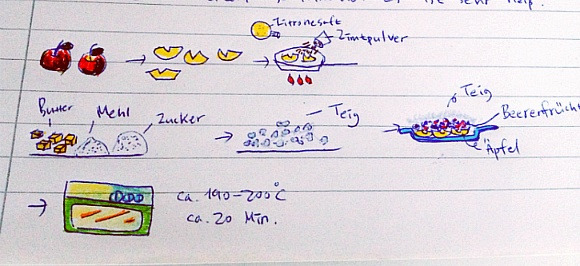 Zitronesaft
Zimtpulver
Butter Mehl Zucker
Teig
Teig
Beerenfrücht
Äpfel
ca. 190-200°C
ca. 20 Min.